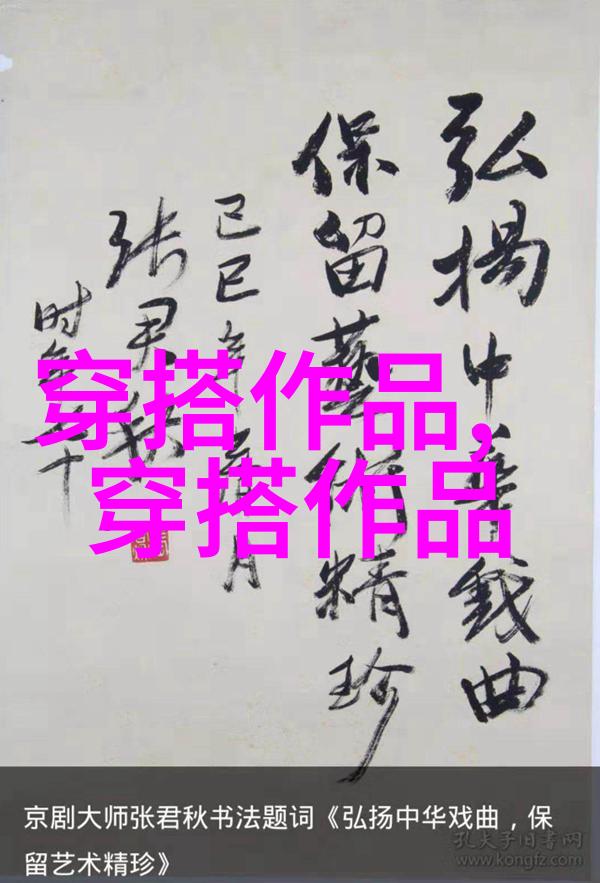 弘揚中華戲曲
保留藝術精珍
己巳年 月
張君秋
时年七十
穿搭作品,
穿搭作品
京剧大师张君秋书法题词《弘扬中华戏曲，保
留艺术精珍》
孔夫子旧书网
www.kongfz.com